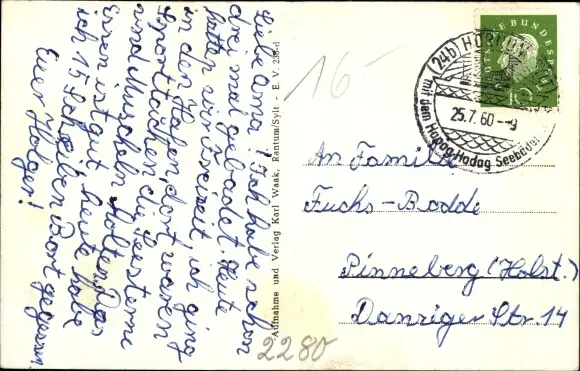 Liebe Oma! Ich habe schon
drei mal gebadet. Heute
hatten wir Freizeit, ich ging
in den Hafen, dort waren
Sporttaucher die Seesterne
und Muscheln holten. Das
Essen ist gut, heute habe
ich 15 Scheiben Brot gegessen.
Euer Holger!
Aufnahme und Verlag Karl Waak, Rantum/Sylt - E. V. 236-d
16-
(24b) HÖRNUM (SYLT)
mit dem Hapag-Hadag Seebäder
25.7.60 --9
DEUTSCHE BUNDESPOST
10
An Familie
Fuchs-Bodde
Pinneberg (Holst.)
Danziger Str. 14
2280